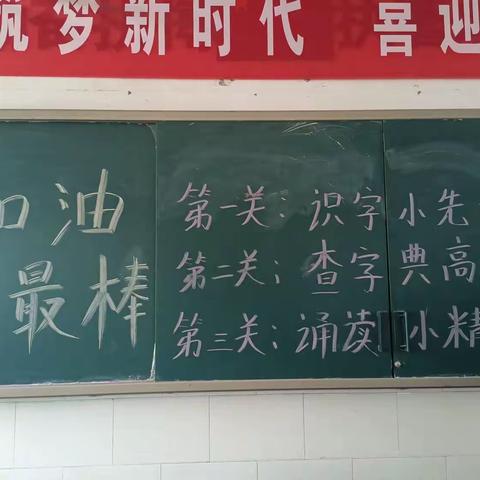 筑梦新时代 喜迎
加油
最棒
第一关：识字小先
第二关：查字典高
第三关：诵读小精